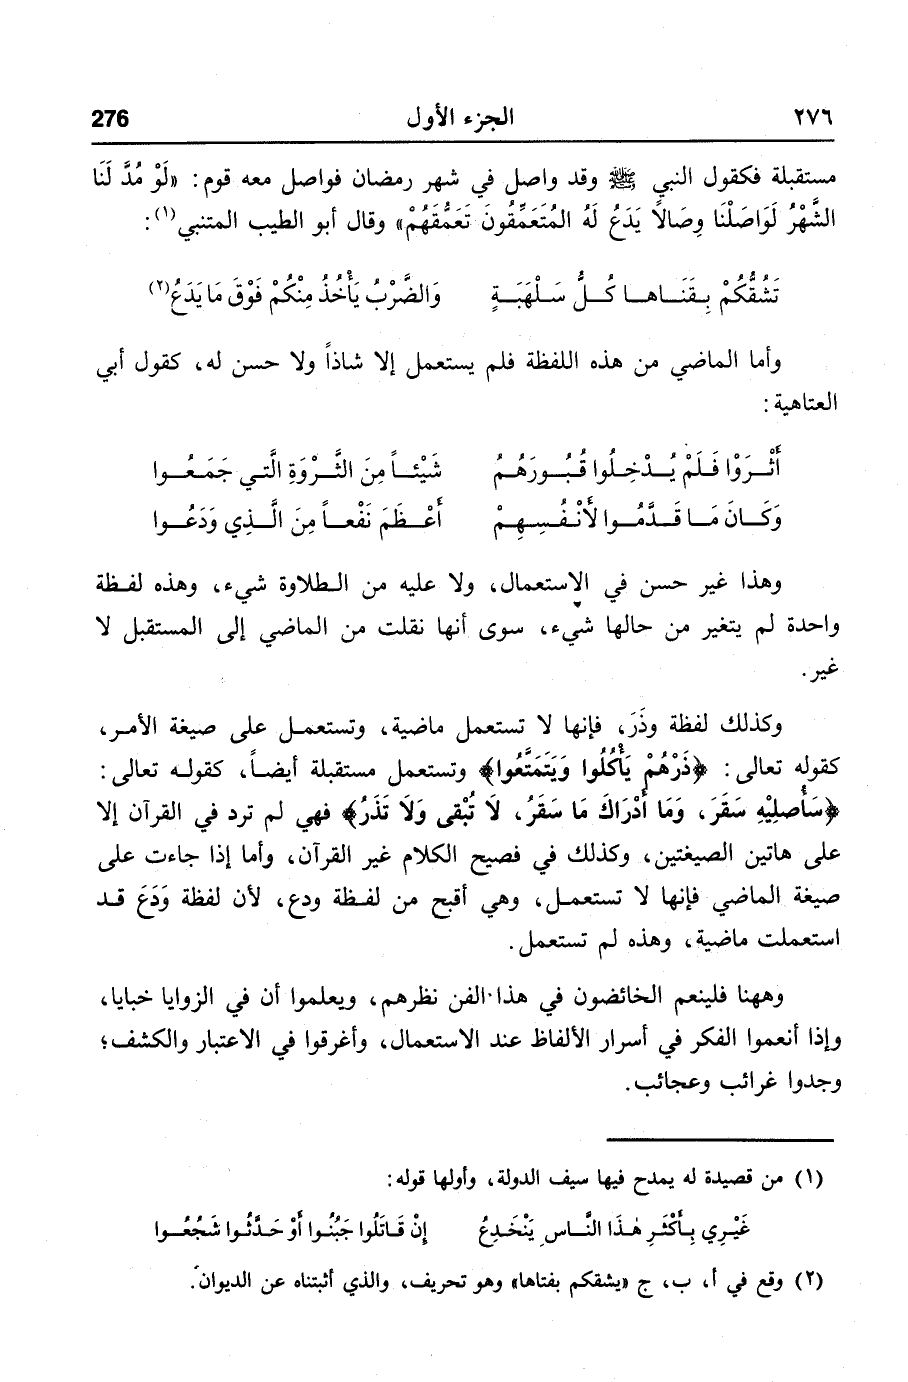 ٢٧٦ الجزء الأول 276
مستقبلة فكقول النبي ﷺ وقد واصل في شهر رمضان فواصل معه قوم: «لَوْ مُدَّ لَنَا
الشَّهْرُ لَوَاصَلْنَا وِصَالاً يَدَعُ لَهُ المُتَعَمِّقُونَ تَعَمُّقَهُمْ» وقال أبو الطيب المتنبي(١):
تَشُقُّكُمْ بِقَنَاهـا كُـلُّ سَـلْهَبَـةٍ وَالضَّرْبُ يَأْخُذُ مِنْكُمْ فَوْقَ مَا يَدَعُ(٢)
وأما الماضي من هذه اللفظة فلم يستعمل إلا شاذاً ولا حسن له، كقول أبي
العتاهية:
أَثْـرَوْا فَلَمْ يُـدْخِلُوا قُبُـورَهُـمُ شَيْئـاً مِنَ الثَّـرْوَةِ الَّتـي جَمَعُـوا
وَكَـانَ مَـا قَـدَّمُـوا لأَنْفُـسِهِـمْ أَعْـظَمَ نَفْعـاً مِنَ الَّـذِي وَدَعُـوا
وهذا غير حسن في الاستعمال، ولا عليه من الطلاوة شيء، وهذه لفظة
واحدة لم يتغير من حالها شيء، سوى أنها نقلت من الماضي إلى المستقبل لا
غير.
وكذلك لفظة وذَرَ، فإنها لا تستعمل ماضية، وتستعمل على صيغة الأمر،
كقوله تعالى: ﴿ذَرْهُمْ يَأْكُلُوا وَيَتَمَتَّعُوا﴾ وتستعمل مستقبلة أيضاً، كقوله تعالى:
﴿سَأُصلِيْهِ سَقَرَ، وَمَا أَدْرَاكَ مَا سَقَرُ، لَا تُبْقى وَلَا تَذَرُ﴾ فهي لم ترد في القرآن إلا
على هاتين الصيغتين، وكذلك في فصيح الكلام غير القرآن، وأما إذا جاءت على
صيغة الماضي فإنها لا تستعمل، وهي أقبح من لفظة ودع، لأن لفظة وَدَعَ قد
استعملت ماضية، وهذه لم تستعمل.
وههنا فلينعم الخائضون في هذا الفن نظرهم، ويعلموا أن في الزوايا خبايا،
وإذا أنعموا الفكر في أسرار الألفاظ عند الاستعمال، وأغرقوا في الاعتبار والكشف؛
وجدوا غرائب وعجائب.
(١) من قصيدة له يمدح فيها سيف الدولة، وأولها قوله:
غَيْرِي بِأَكْثَرِ هٰذَا النَّـاسِ يَنْخَدِعُ إِنْ قَاتَلُوا جَبُنُوا أَوْ حَدَّثُوا شَجُعُـوا
(٢) وقع في أ، ب، ج «يشقكم بفتاها» وهو تحريف، والذي أثبتناه عن الديوان.